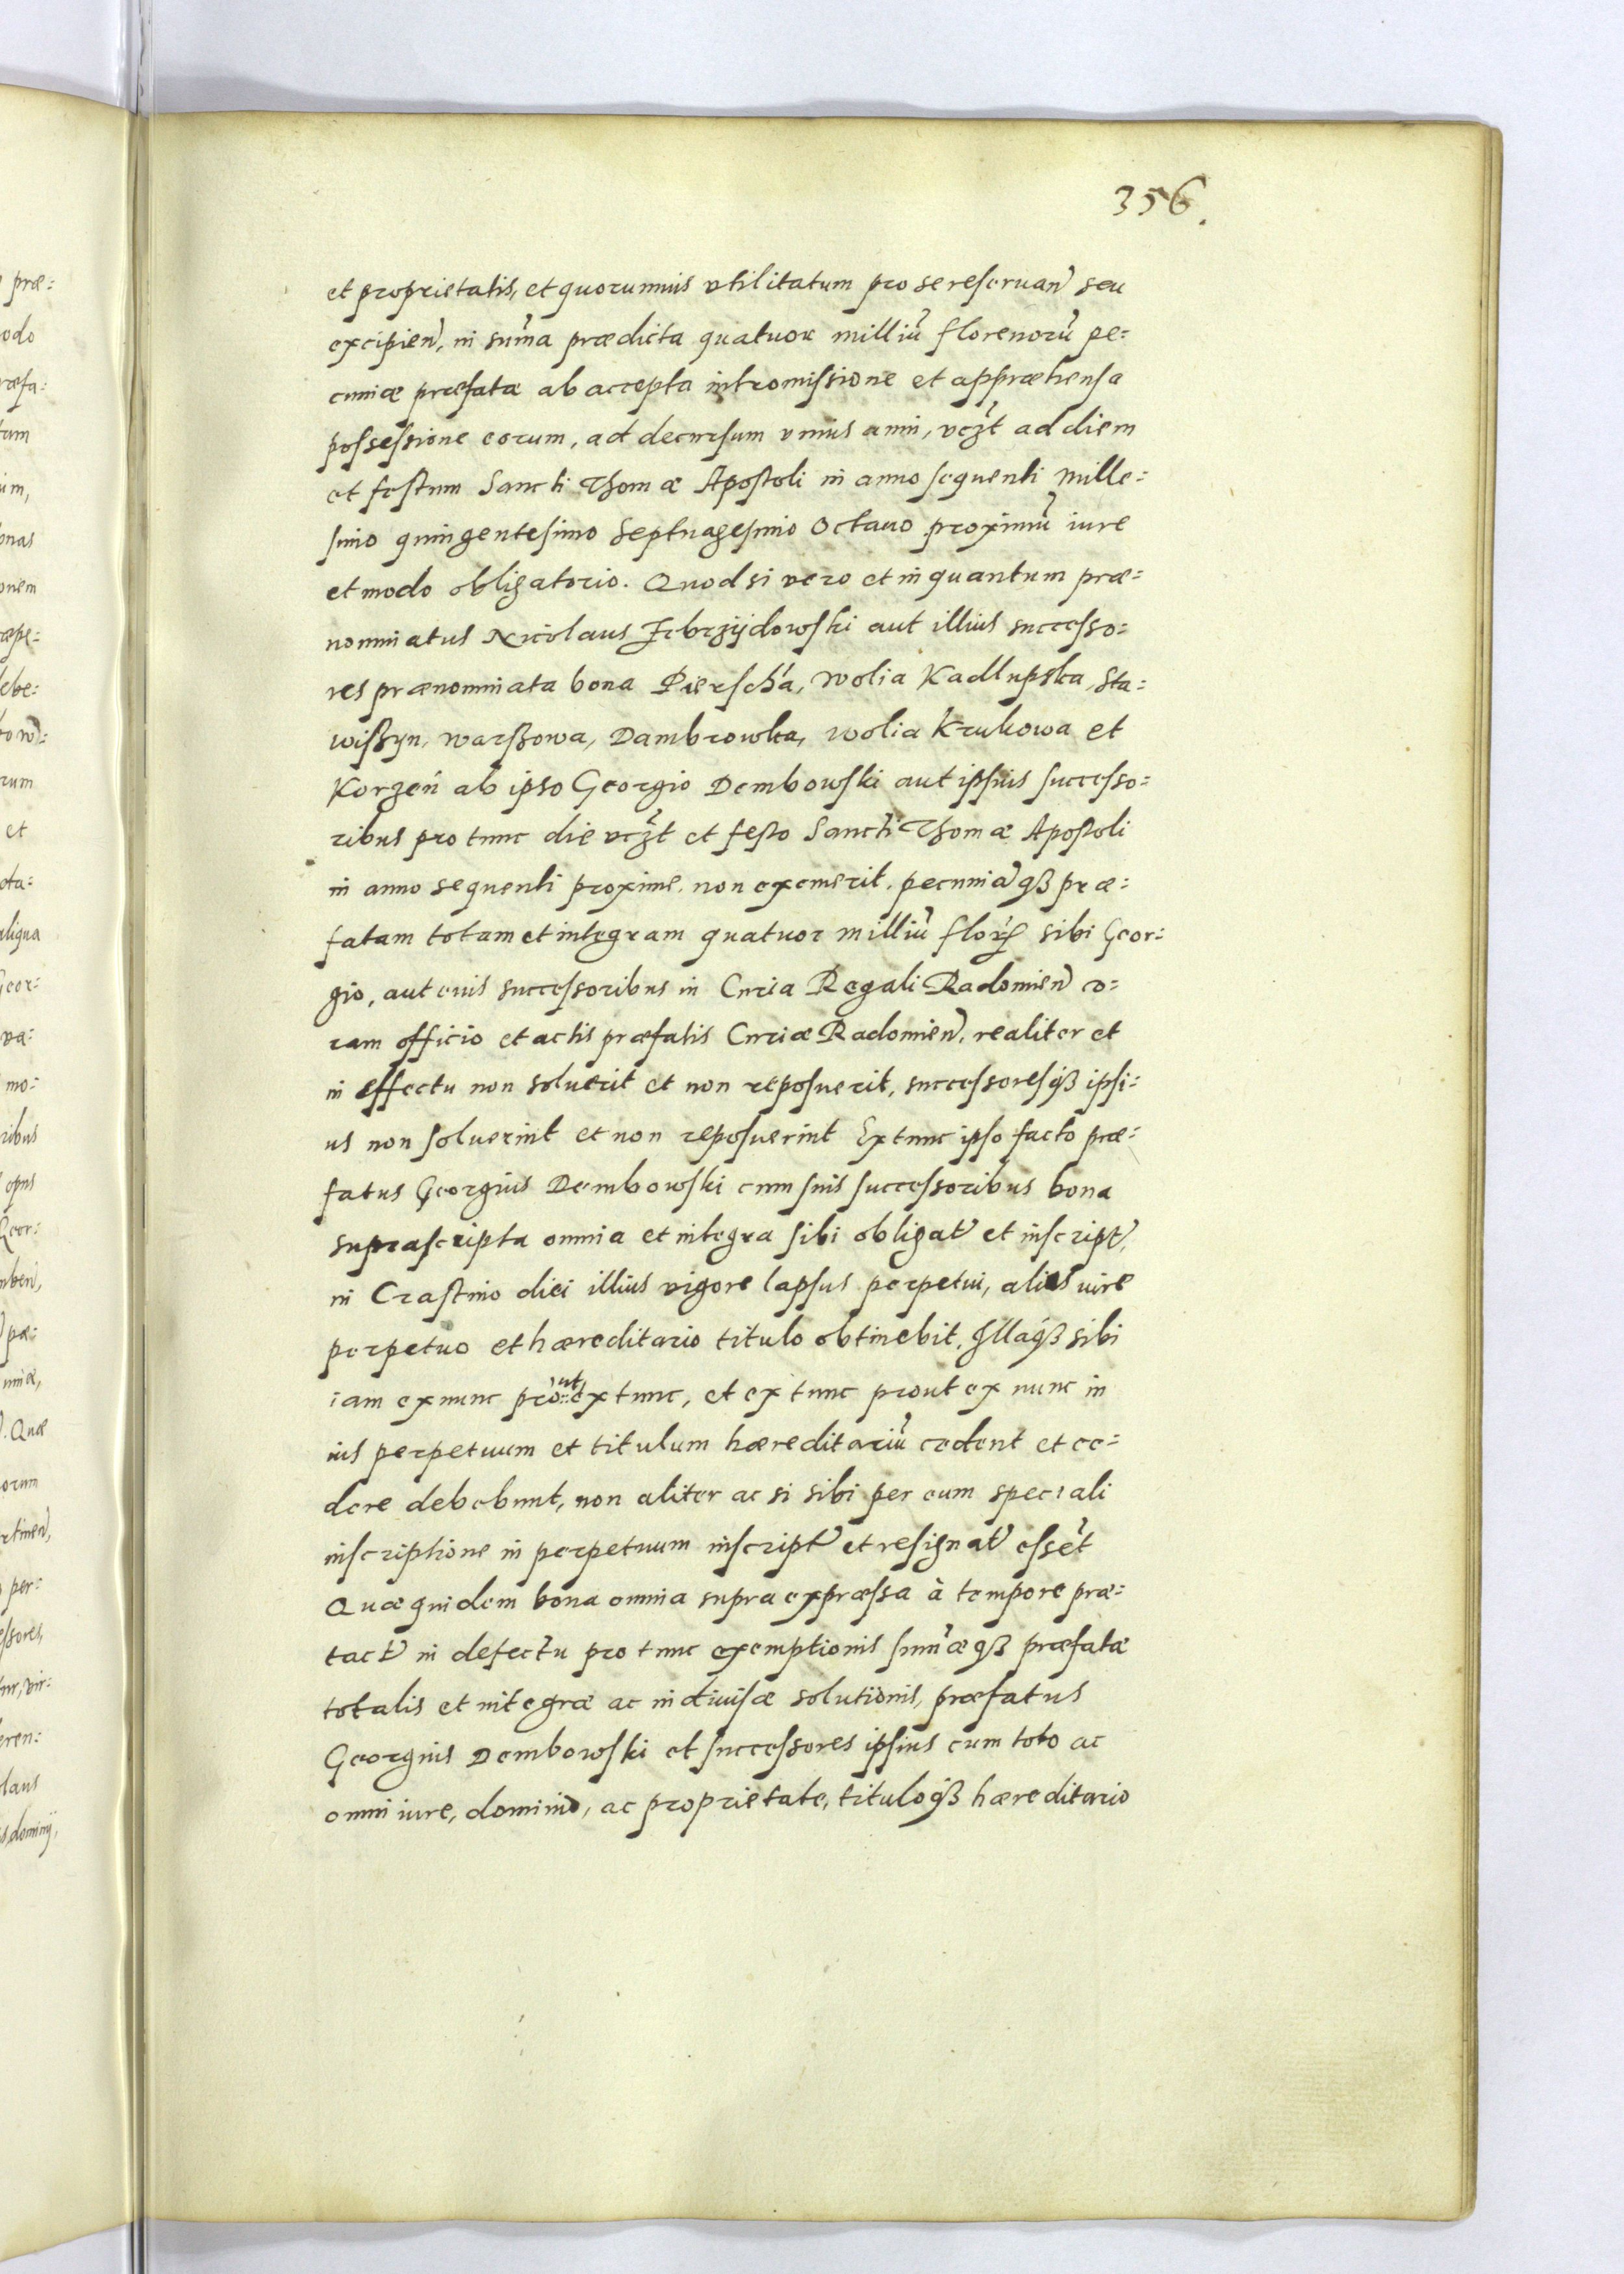 356.
et proprietatis, et quorumuis vtilitatum pro se reseruan̄ seu
excipien̄, in sum̄a prædicta quatuor milliū florenorū pe=
cuniæ præfatæ ab accepta intromissione et appræhensa
possessione eorum, ad decursum vnius anni, vcz̄t ad diem
et festum Sancti Thomæ Apostoli in anno sequenti Mille=
simo quingentesimo Septuagesimo Octauo proximū iure
et modo obligatorio. Quod si vero et in quantum præ=
nominatus Nicolaus Zebrzijdowski aut illius successo=
res prænominata bona Pierschá, Wolia Kadlupska, Sta=
wißyn, Warßowa, Dambrowka, Wolia Krukowa et
Korzeń ab ipso Georgio Dembowski aut ipsius successo=
ribus pro tunc die vcz̄t et festo Sancti Thomæ Apostoli
in anno sequenti proxime, non exemerit, pecuniāqß præ=
fatam totam et integram quatuor milliū floꝝ sibi Geor=
gio, aut euis successoribus in Curia Regali Radomien̄ co=
ram officio et actis præfatis Curiæ Radomien̄, realiter et
in effectu non soluerit et non reposuerit, successoresqß ipsi=
us non soluerint et non reposuerint Extunc ipso facto præ=
fatus Georgius Dembowski cum suis successoribus bona
suprascripta omnia et integra sibi obligat̄ et inscript̄,
in Crastino diei illius vigore lapsus perpetui, alias iure
perpetuo et hæreditario titulo obtinebit, Illaqß sibi
iam ex nunc prout ex tunc, et ex tunc prout ex nunc in
ius perpetuum et titulum hæreditariū cedent et ce=
dere debebunt, non aliter ac si sibi per eum speciali
inscriptione in perpetuum inscript̄ et resignat̄ essēt
Quæquidem bona omnia supra expræssa à tempore præ=
tact̄ in defectu pro tunc exemptionis sum̄æqß præfatæ
totalis et integræ ac indiuisæ solutionis, præfatus
Georgius Dembowski et successores ipsius cum toto ac
omni iure, dominio, ac proprietate, tituloqß hæreditario